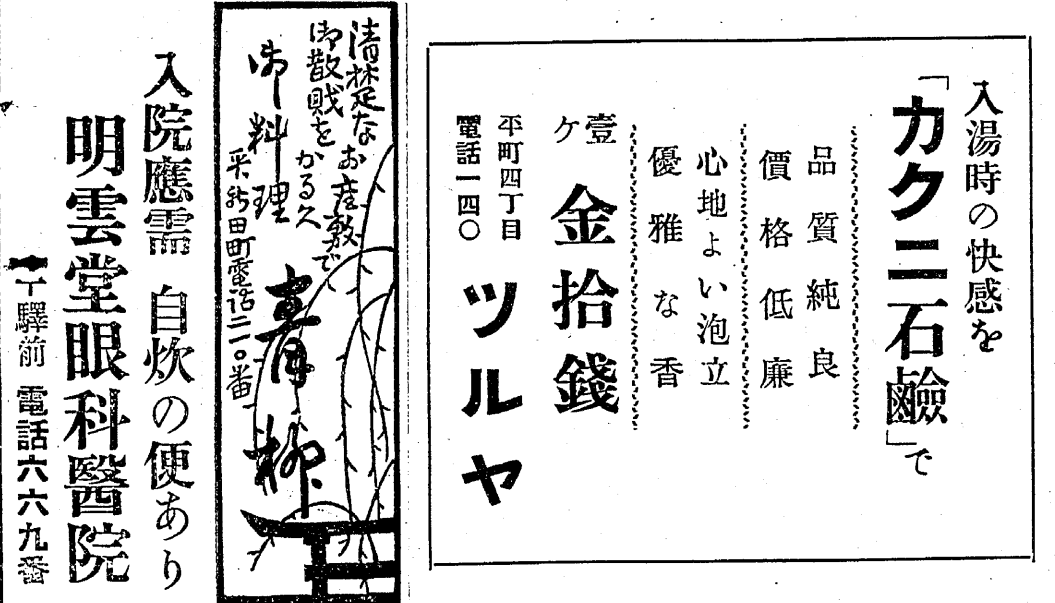 入湯時の快感を
「カクニ石鹼」で
品質純良
價格低廉
心地よい泡立
優雅な香
壹ケ
金拾錢
平町四丁目
電話一四〇
ツルヤ
清楚な
お座敷で
御散財を
かる久
御料理
靑柳
平新田町電話二一〇番
入院應需 自炊の便あり
明雲堂眼科醫院
驛前 電話六六九番